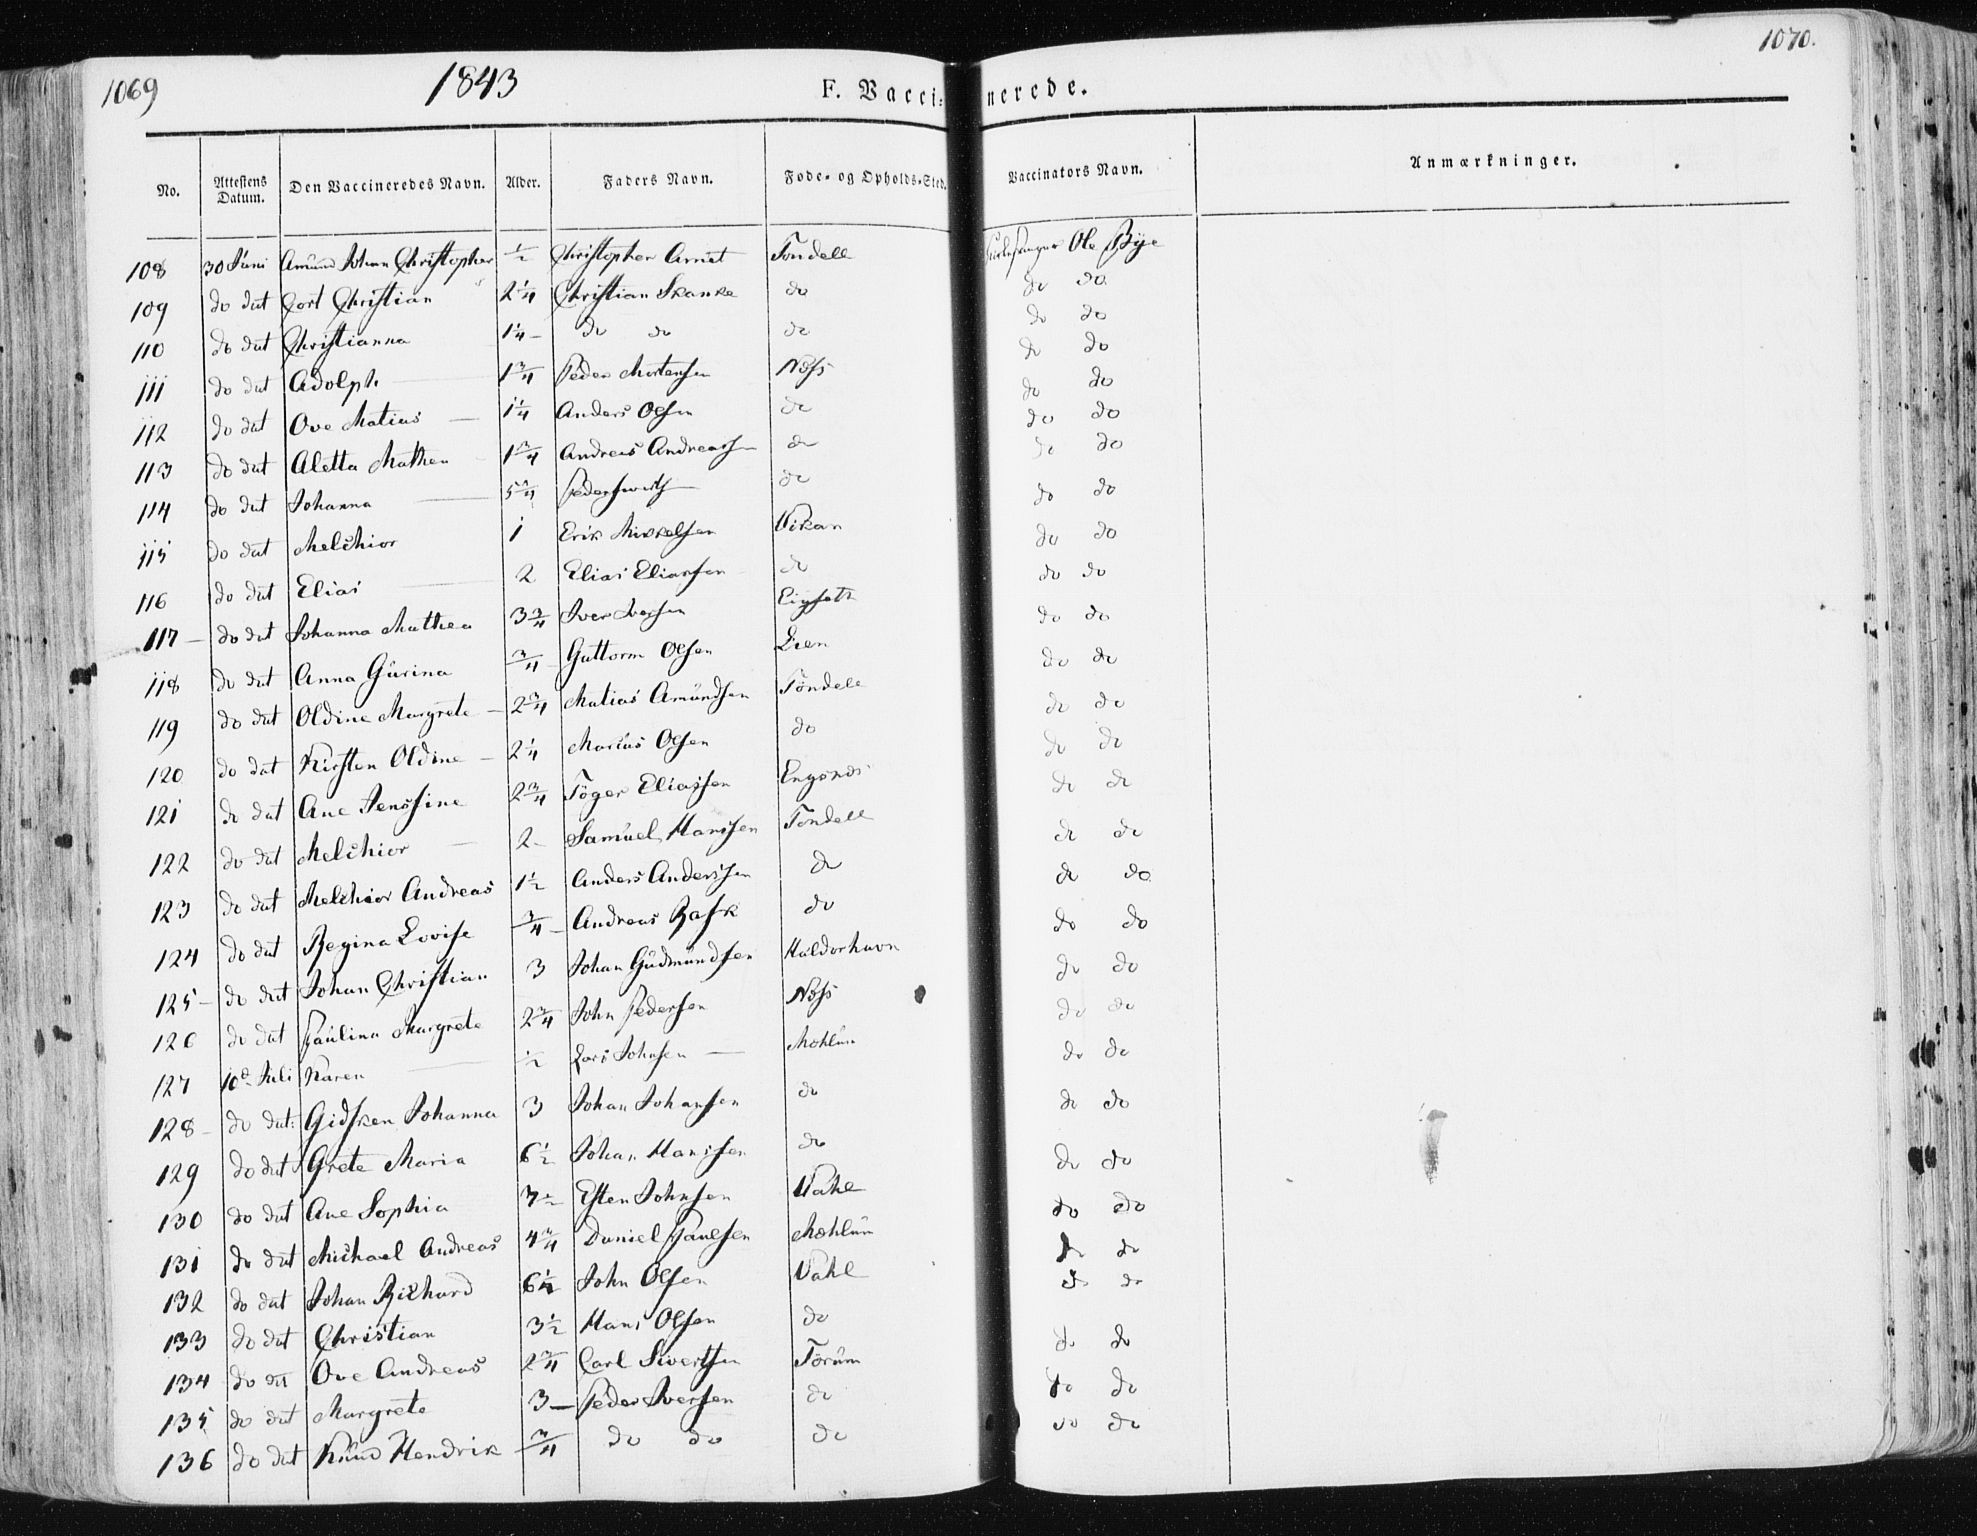 1069 1843 F. Vaccinerede. 1070.
No. Attestens Datum. Den Vaccineredes Navn. Alder. Faders Navn. Føde- og Opholds-Sted. Vaccinators Navn. Anmærkninger.
108 30 Juni Amund Johan Christopher ½ Christopher Arnet Tondell Ole Bye
109 do dat Cort Christian 2¼ Christian Skanke do do do
110 do dat Christianna 1¼ - do do do do do
111 do dat Adolph 1¾ Peder Mortensen Næss do do
112 do dat Ove Matias — 1¼ Anders Olsen do do do
113 do dat Aletta Mathea 1¾ Andreas Andreassen do do do
114 do dat Johanna — do do do
115 do dat Melchior 1 Erik Mikkelsen Vikan do do
116 do dat Elias 2 Elias Eliassen do do do
117 - do dat Johanna Mathea 3¾ Iver Iversen do do
118 do dat Anna Gurina ¾ Guttorm Olsen Lien do do
119 do dat Oldine Margrete - 2¾ Matias Amundsen Tøndell do do
120 do dat Kirsten Oldine - 2¼ Marius Olsen do do do
121 do dat Ane Jenssine 2¾ Tøger Eliassen do do
122 do dat Melchior — 2 - Samuel Hanssen Tondell do do
123 do dat Melchior Andreas 1½ Anders Anderssen do do do
124 do dat Regina Lovise ¾ - Andreas Rask do do do
125 - do dat Johan Christian 3 Johan Gudmundsen Haldorhavn do do
126 do dat Paulina Margrete 2¾ John Pedersen Næss do do
127 10de Juli Karen ½ Lars Johnsen — Mæhlum do do
128 - do dat: Gidsken Johanna 3 Johan Johansen do do do
129 do dat Grete Maria 6½ Johan Hanssen do do do
130 do dat Ane Sophia 7½ Esten Johnsen Vahl do do
131 do dat Michael Andreas 4¾ Daniel Paulsen Mæhlum do do
132 do dat Johan Richard 6¼ John Olsen Vahl do do
133 do dat Christian 3½ Hans Olsen do do do
134 do dat Ove Andreas 2¾ Carl Sivertsen Torum do do
135 do dat Margrete 3 — Peder Iversen do do do
136 do dat Knud Hendrik ¾ do do do do do